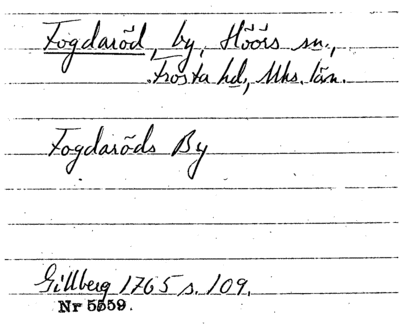 Fogdaröd, by, Höörs sn.,
Frosta hd, Mhs. län.
Fogdaröds By
Gillberg 1765 s. 109.
Nr 5559.